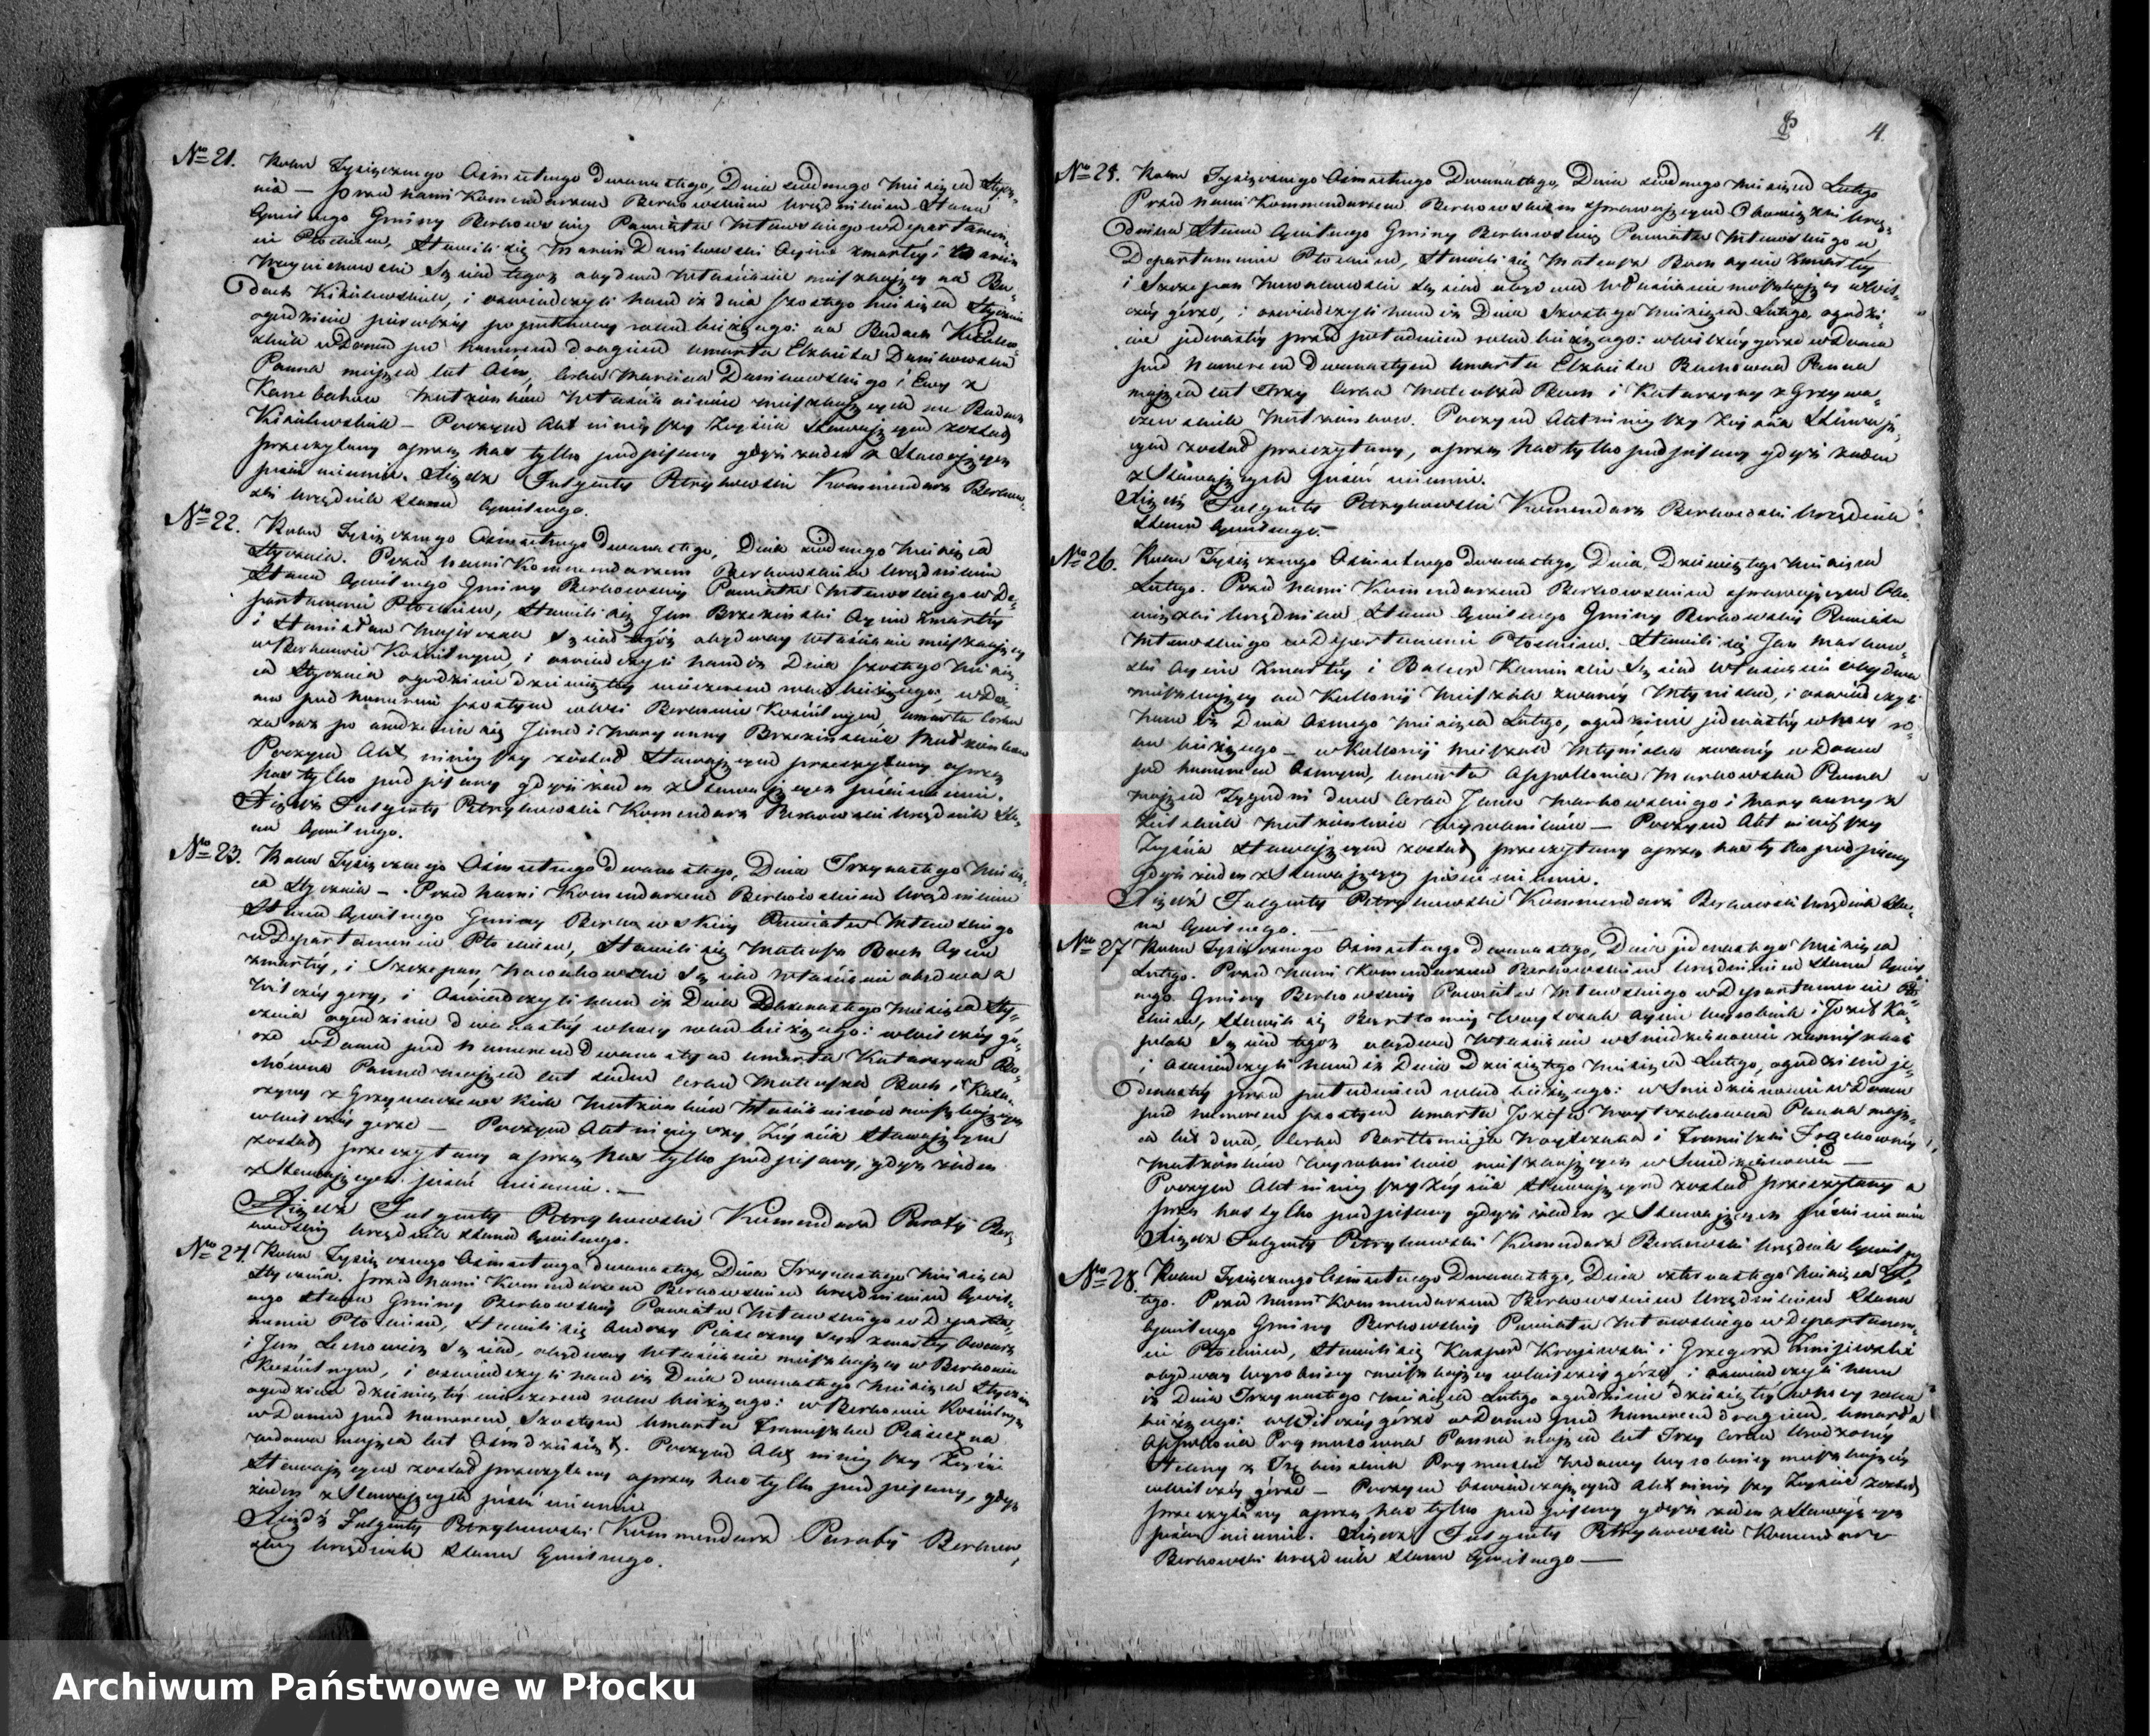 No 21. Roku Tysięcznego Osmsetnego dwunastego, Dnia siodmego Miesiąca Stycz-
nia — Przed nami Kommendarzem Berkowskim Urzędnikiem Stanu
Cywilnego Gminy Berkowskiy Powiatu Mławskiego w Departamen-
cie Płockim, Stawili się Marcin Danikowski Oyciec zmarłey i Marcin
Sąsiad tegoż obydwa Włościanie mieszkający na Bu-
dach Kikulewskich, i oswiadczyli nam iż dnia szostego miesiąca Stycznia
ogodzinie pierwszey popułnocy roku bieżącego: na Budach Kikulew-
skich w Domu pod numerem drugim umarła Elżbieta Danikowska
Panna maiąca lat Osm, Corka Marcina Danikowskiego i Ewy z
Małżonków Włościanów mieszkaiących na Budach
Kikulewskich — Poczym Akt ninieyszy Zeyścia Stawaiącym został
przeczytany a przez nas tylko podpisany gdyż żaden z Stawaiących
pisać nieumie. Xiądz Fulgenty Petrykowski Kommendarz Berkow-
ski Urzędnik Stanu Cywilnego.
No 22. Roku Tysięcznego Osmsetnego dwunastego, Dnia siodmego Miesiąca
Stycznia. Przed nami Kommendarzem Berkowskim Urzędnikiem
Stanu Cywilnego Gminy Berkowskiy Powiatu Mławskiego w De-
partamencie Płockim, Stawili się Jan Brzeziński Oyciec Zmarłey
i Stanisław Sąsiad tegoż obydway Włościanie mieszkaiący
w Berkowie Kościelnym, i oswiadczyli nam iż Dnia szostego Miesią-
ca Stycznia ogodzinie dziewiątey wieczorem roku bieżącego, w Do-
mu pod numerem szostym wWsi Berkowie Kościelnym, umarła Corka
zaraz po urodzeniu się Jana i Maryanny Brzezińskich Małżonków
Poczym Akt ninieyszy został Stawaiącym przeczytany a przez
nas tylko podpisany gdyż żaden z Stawaiących pisać nieumie.
Xiądz Fulgenty Petrykowski Kommendarz Berkowski Urzędnik Sta-
nu Cywilnego.
No 23. Roku Tysięcznego Osmsetnego dwunastego, Dnia Trzynastego Miesią-
ca Stycznia — Przed nami Kommendarzem Berkowskim Urzędnikiem
Stanu Cywilnego Gminy Berkowskiy Powiatu Mławskiego
w Departamencie Płockim, Stawili się Mateusz Bach Oyciec
zmarłey, i Szczepan Nowakowski Sąsiad Włościanie obydwa z
Wilczey gory, i Oświadczyli nam iż Dnia Dwunastego Miesiąca Sty-
cznia ogodzinie dwunastey wnocy roku bieżącego: wWilczey gó-
rze w Domu pod numerem dwunastym umarła Katarzyna Ba-
chówna Panna maiąca lat siedm Corka Mateusza Bach i Kata-
rzyny z Grzymaczewskich Małżonków Włościanów mieszkaiących
wWilczey gorze — Poczym Akt ninieyszy Zeyścia Stawaiącym
został przeczytany a przez nas tylko podpisany, gdyż żaden
z Stawaiących pisać nieumie. —
Xiądz Fulgenty Petrykowski Kommendarz Parafij Ber-
kowskiy Urzędnik Stanu Cywilnego.
No 24. Roku Tysięcznego Osmsetnego dwunastego, Dnia Trzynastego Miesiąca
Stycznia. Przed nami Kommendarzem Berkowskim Urzędnikiem Cywil-
nego Stanu Gminy Berkowskiy Powiatu Mławskiego w Departa-
mencie Płockim, Stawili się Andrzy Piaseczny Syn zmarłey
i Jan Lechowicz Sąsiad, obydway Włościanie mieszkaiący w Berkowie
Kościelnym, i oswiadczyli nam iż Dnia dwunastego Miesiąca Stycznia
ogodzinie dziewiątey wieczorem roku bieżącego: w Berkowie Kościelnym
w Domu pod numerem Szostym Umarła Franciszka Piaseczna
wdowa maiąca lat Ośmdziesiąt. Poczym Akt ninieyszy Zeyścia
Stawaiącym został przeczytany a przez nas tylko podpisany, gdyż
żaden z Stawaiących pisać nieumie
Xiądz Fulgenty Petrykowski Kommendarz Parafij Berkow-
skiey Urzędnik Stanu Cywilnego.
8 4.
No 25. Roku Tysięcznego Osmsetnego Dwunastego, Dnia siodmego Miesiąca Lutego
Przed nami Kommendarzem Berkowskim sprawuiącym Obowiązki Urzę-
dnika Stanu Cywilnego Gminy Berkowskiy Powiatu Mławskiego w
Departamencie Płockim, Stawili się Mateusz Bach oyciec Zmarłey
i Szczepan Nowakowski Sąsiad obydwa Włościanie mieszkaiący wWil-
czey górze, i oswiadczyli nam iż Dnia Szostego Miesiąca Lutego, ogodzi-
nie jedenastey przed południem roku bieżącego: wWilczey gorze w Domu
pod Numerem Dwunastym umarła Elżbieta Bachowna Panna
maiąca lat Trzy Corka Mateusza Bach i Katarzyny z Grzyma-
czewskich Małżonkow. Poczym Akt ninieyszy Zeyścia Stawaią-
cym został przeczytany, a przez nas tylko podpisany gdyż żaden
z Stawaiących pisać nieumie.
Xiądz Fulgenty Petrykowski Kommendarz Berkowski Urzędnik
Stanu Cywilnego —
No 26. Roku Tysięcznego Osmsetnego dwunastego, Dnia Dziewiątego Miesiąca
Lutego. Przed nami Kommendarzem Berkowskim sprawuiącym Obo-
wiązki Urzędnika Stanu Cywilnego Gminy Berkowskiy Powiatu
Mławskiego w Departamencie Płockim. Stawili się Jan Markow-
ski Oyciec Zmarłey i Kaminski Sąsiad Włościanie obydwa
mieszkaiący na Kollonij zwaney Młyńska, i oswiadczyli
nam iż Dnia Osmego Miesiąca Lutego, ogodzinie jedenastey wnocy ro-
ku bieżącego — w Kollonij zwaney w Domu
pod numerem Osmym, umarła Appollonia Markowska Panna
maiąca Tygodni dwa Corka Jana Markowskiego i Maryanny z
Małżonków Wyrobników — Poczym Akt ninieyszy
Zeyścia Stawaiącym został przeczytany a przez nas tylko podpisany
gdyż żaden z Stawaiących pisać nieumie.
Xiądz Fulgenty Petrykowski Kommendarz Berkowski Urzędnik Sta-
nu Cywilnego. —
No 27 Roku Tysięcznego Osmsetnego dwunastego, Dnia jedenastego Miesiąca
Lutego. Przed nami Kommendarzem Berkowskim Urzędnikiem Stanu Cywil-
nego Gminy Berkowskiy Powiatu Mławskiego w Departamencie Pło-
ckim, Stawili się Bartłomiey Woytczak oyciec i Jozef Ka-
Sąsiad tegoż obydwa Włościanie
i oswiadczyli nam iż Dnia Dziesiątego Miesiąca Lutego, ogodzinie je-
denastey przed południem roku bieżącego: w Domu
pod numerem szostym umarła Jozefa Woytczakowna Panna maią-
ca lat dwa, Corka Bartłomieja Woytczaka i Franciszki
Małżonków Wyrobników mieszkaiących w —
Poczym Akt ninieyszy Zeyścia Stawaiącym został przeczytany a
przez nas tylko podpisany gdyż żaden z Stawaiących pisać nieumie
Xiądz Fulgenty Petrykowski Kommendarz Berkowski Urzędnik Cywilny
No 28. Roku Tysięcznego Osmsetnego Dwunastego, Dnia czternastego Miesiąca Lu-
tego. Przed nami Kommendarzem Berkowskim Urzędnikiem Stanu
Cywilnego Gminy Berkowskiy Powiatu Mławskiego w Departamen-
cie Płockim, Stawili się Kasper Kraiewski i Grzegorz Zmijewski
obydway Wyrobnicy mieszkaiący wWilczey górze, i oswiadczyli nam
iż Dnia Trzynastego Miesiąca Lutego ogodzinie dziesiątey wnocy roku
bieżącego: wWilczey górze w Domu pod numerem drugim, umarła
Appolonia Prymusowna Panna maiąca lat Trzy Corka Urodzoney
z Prymusow Wdowy Wyrobnicy mieszkaiącey
wWilczey górze — Poczym Oswiadczaiącym Akt ninieyszy Zeyścia został
przeczytany a przez nas tylko podpisany gdyż żaden z Stawaiących
pisać nieumie. Xiądz Fulgenty Petrykowski Komendarz
Berkowski Urzędnik Stanu Cywilnego —
Archiwum Państwowe w Płocku